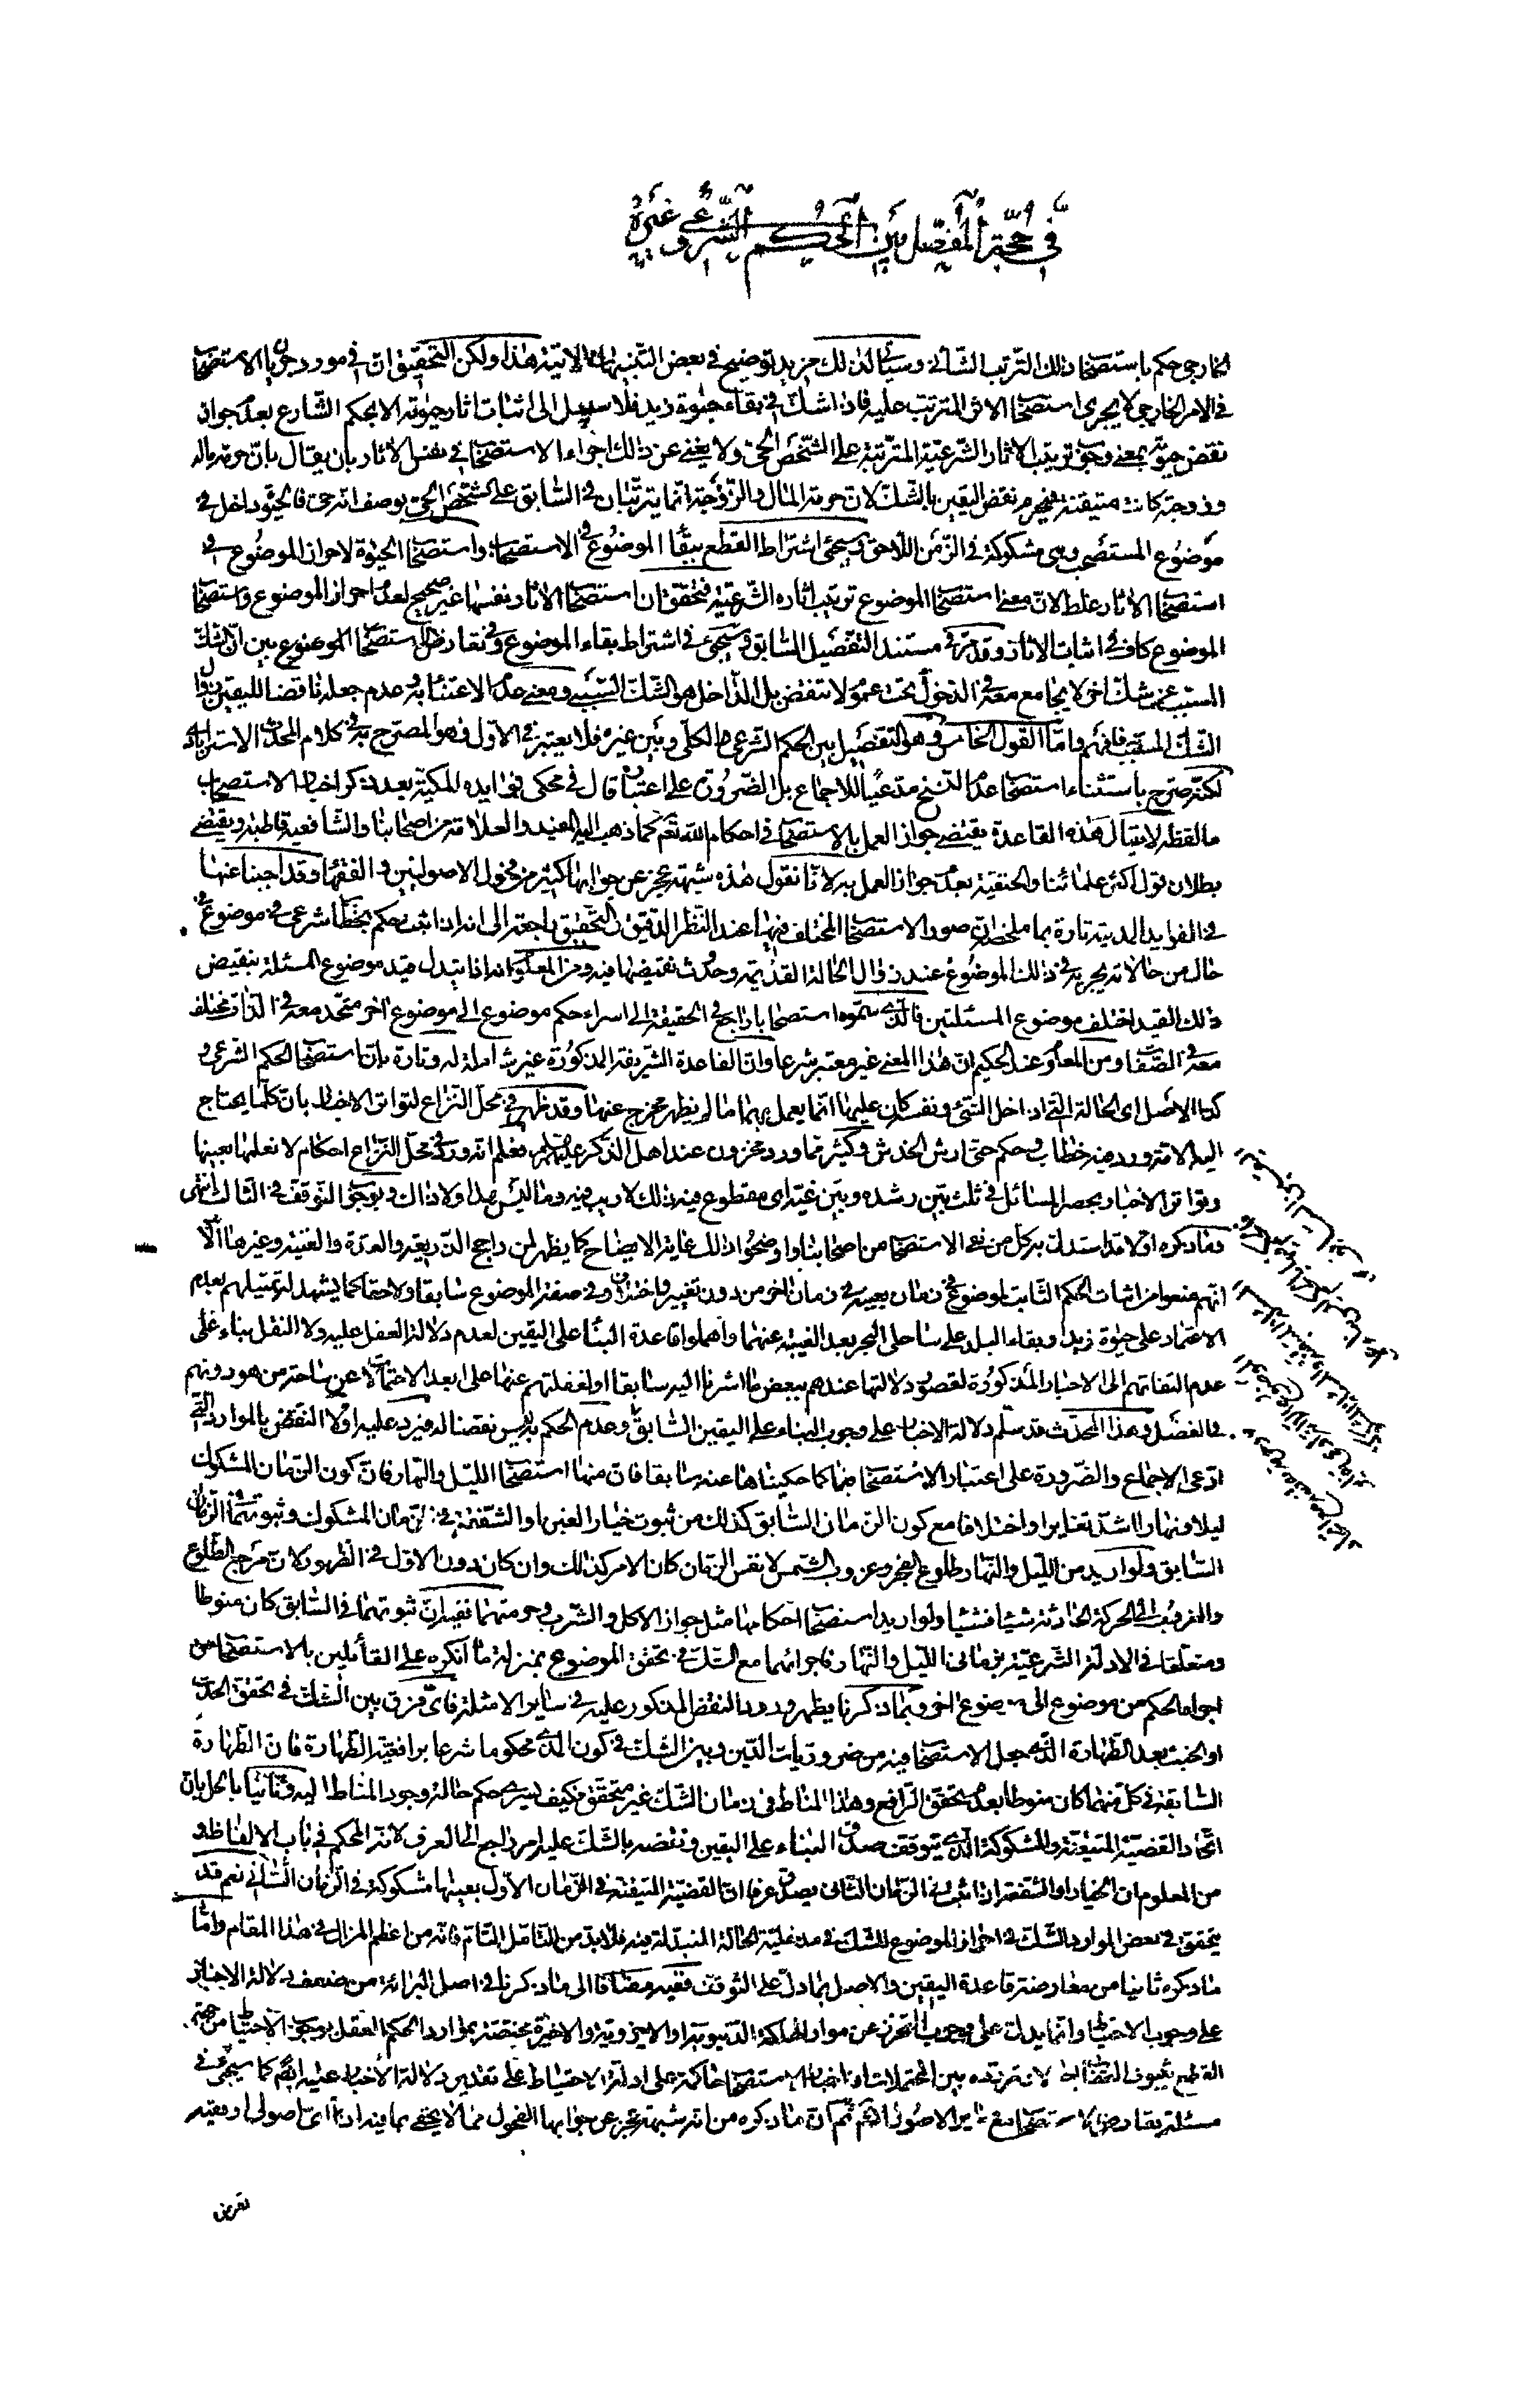 في حجة المفصل بين الحكم الشرعي وغيره
الخارجي حكم باستصحاب ذلك الترتب الشأني وسيأتي لذلك مزيد توضيح في بعض التنبيهات الاتية هذا ولكن التحقيق ان في مورد جريان الاستصحاب
في الامر الخارجي لا يجري استصحاب الاثر المترتب عليه فاذا شك في بقاء حيوة زيد فلا سبيل الى اثبات اثار حيوته الا بحكم الشارع بعدم جواز
نقض حيوته بمعنى وجوب ترتيب الاثار الشرعية المترتبة على الشخص الحي ولا يغني عن ذلك اجراء الاستصحاب في نفس الاثار بان يقال بان حرمة ماله
وزوجته كانت متيقنة فيحرم نقض اليقين بالشك لان حرمة المال والزوجة انما يترتبان في السابق على الشخص الحي بوصف انه حي فالحيوة داخل في
موضوع المستصحب وهي مشكوكة في الزمن اللاحق وسيجئ اشتراط القطع ببقاء الموضوع في الاستصحاب واستصحاب الحيوة لاحراز الموضوع في
استصحاب الاثار غلط لان معنى استصحاب الموضوع ترتيب اثاره الشرعية فتحقق ان استصحاب الاثار نفسها غير صحيح لعدم احراز الموضوع واستصحاب
الموضوع كاف في اثبات الاثار وقد مر في مستند التفصيل السابق وسيجئ في اشتراط بقاء الموضوع وفي تعارض الاستصحاب الموضوع بين ان الشك
المسبب عن شك اخر لا يجامع معه في الدخول تحت عموم لا تنقض بل الداخل هو الشك السببي ومعنى عدم الاعتناء به وعدم جعله ناقضا لليقين زوال
الشك المسبب فافهم واما القول الخامس وهو التفصيل بين الحكم الشرعي الكلي وبين غيره فلا يعتبر في الاول فهو المصرح به في كلام المحدث الاسترابادي
لكنه صرح باستثناء استصحاب عدم النسخ مدعيا للاجماع بل الضرورة على اعتباره قال في محكي فوايده المكية بعد ذكر اخبار الاستصحاب
ما لفظه لا يقال هذه القاعدة يقتضي جواز العمل بالاستصحاب في احكام الله تعم كما ذهب اليه المفيد والعلامة من اصحابنا والشافعية قاطبة ويقتضي
بطلان قول اكثر علمائنا والحنفية بعدم جواز العمل به لانا نقول هذه شبهة عجز عن جوابها كثير من فحول الاصوليين والفقهاء وقد اجبنا عنها
في الفوايد المدنية تارة بما ملخصه ان صور الاستصحاب المختلف فيها عند النظر الدقيق والتحقيق راجعة الى انه اذا ثبت حكم بخطاب شرعي في موضوع في
حال من حالاته نجريه في ذلك الموضوع عند زوال الحالة القديمة وحدوث نقيضها فيه ومن المعلوم انه اذا تبدل قيد موضوع المسئلة بنقيض
ذلك القيد اختلف موضوع المسئلتين فالذي سموه استصحابا راجع في الحقيقة الى اسراء حكم موضوع الى موضوع اخر متحد معه في الذات مختلف
معه في الصفات ومن المعلوم عند الحكيم ان هذا المعنى غير معتبر شرعا وان القاعدة الشريفة المذكورة غير شاملة له وتارة بان استصحاب الحكم الشرعي و
كذا الاصل اي الحالة التي اذا خلي الشئ ونفسه كان عليها انما يعمل بهما ما لم يظهر مخرج عنهما وقد ظهر في محل النزاع لتواتر الاخبار بان كلما يحتاج
اليه الامة ورد فيه خطاب وحكم حتى ارش الخدش وكثير مما ورد مخزون عند اهل الذكر عليهم السلام فعلم انه ورد في محل النزاع احكام لا نعلمها بعينها
وتواتر الاخبار بحصر المسائل في ثلث بين رشده وبين غيه اي مقطوع فيه ذلك لا ريب فيه وما ليس هذا ولا ذاك وبوجوب التوقف في الثالث انتهى
وما ذكره اولا قد استدل به كل من نفى الاستصحاب من اصحابنا واوضحوا ذلك غاية الايضاح كما يظهر لمن راجع الذريعة والعدة والغنية وغيرها الا
انهم منعوا من اثبات الحكم الثابت لموضوع في زمان بعينه في زمان اخر من دون تغيير واختلاف في صفة الموضوع سابقا ولاحقا كما يشهد له تمثيلهم بعدم
الاعتماد على حيوة زيد او بقاء البلد على ساحل البحر بعد الغيبة عنهما واهملوا قاعدة البناء على اليقين لعدم دلالة العقل عليه ولا النقل بناء على
عدم التفاتهم الى الاخبار المذكورة لقصور دلالتها عندهم ببعض ما اشرنا اليه سابقا او لغفلتهم عنها على ابعد الاحتمالات عن ساحة من هو دونهم
في الفضل وهذا المحدث قد سلم دلالة الاخبار على وجوب البناء على اليقين السابق وعدم الحكم بنقيض نقضا له فيرد عليه اولا النقض بالموارد التي
ادعى الاجماع والضرورة على اعتبار الاستصحاب فيها كما حكيناها عنه سابقا فان منها استصحاب الليل والنهار فان كون الزمان المشكوك
ليلا ونهارا اشد تغايرا واختلافا مع كون الزمان السابق كذلك من ثبوت خيار الغبن او الشفعة في الزمان المشكوك وثبوتهما في الزمان
السابق ولو اريد من الليل والنهار طلوع الفجر وغروب الشمس لا نفس الزمان كان الامر كذلك وان كان دون الاول في الظهور لان مرجع الطلوع
والغروب الى الحركة الحادثة شيئا فشيئا ولو اريد استصحاب احكامها مثل جواز الاكل والشرب وحرمتهما ففيه ان ثبوتهما في السابق كان منوطا
ومتعلقا في الادلة الشرعية بزماني الليل والنهار فاجرائهما مع الشك في تحقق الموضوع بمنزلة ما انكره على القائلين بالاستصحاب من
اجراء الحكم من موضوع الى موضوع اخر وبما ذكرنا يظهر ورود النقض المذكور عليه في ساير الامثلة فاي فرق بين الشك في تحقق الحدث
او الخبث بعد الطهارة الذي جعل الاستصحاب فيه من ضروريات الدين وبين الشك في كون المذي محكوما شرعا برافعية الطهارة فان الطهارة
السابقة في كل منهما كان منوطا بعدم تحقق الرافع وهذا المناط في زمان الشك غير متحقق فكيف يسري حكم حالة وجود المناط اليه وثانيا بالحل بان
اتحاد القضية المتيقنة والمشكوكة الذي يتوقف صدق البناء على اليقين ونقضه بالشك عليه امر راجع الى العرف لانه المحكم في باب الالفاظ و
من المعلوم ان الخيار او الشفعة اذا ثبت في الزمان الثاني يصدق عرفا ان القضية المتيقنة في الزمان الاول بعينها مشكوكة في الزمان الثاني نعم قد
يتحقق في بعض الموارد الشك في احراز الموضوع للشك في مدخلية الحالة المتبدلة فيه فلا بد من التامل التام فانه من اعظم المزال في هذا المقام واما
ما ذكره ثانيا من معارضة قاعدة اليقين والاصل بما دل على التوقف ففيه مضافا الى ما ذكرنا في اصل البرائة من ضعف دلالة الاخبار
على وجوب الاحتياط وانما يدل على وجوب التحرز عن موارد الهلكة الدنيوية او الاخروية والاخيرة مختصة بموارد حكم العقل بوجوب الاحتياط من جهة
القطع بثبوت العقاب اجمالا وتردده بين المحتملات ان اخبار الاستصحاب حاكمة على ادلة الاحتياط على تقدير دلالة الاخبار عليه ايضا كما سيجئ في
مسئلة تعارض الاستصحاب مع ساير الاصول انشم ثم ان ما ذكره من انه شبهة عجز عن جوابها الفحول مما لا يخفى ما فيه اذ اي اصولي او فقيه
تعرض